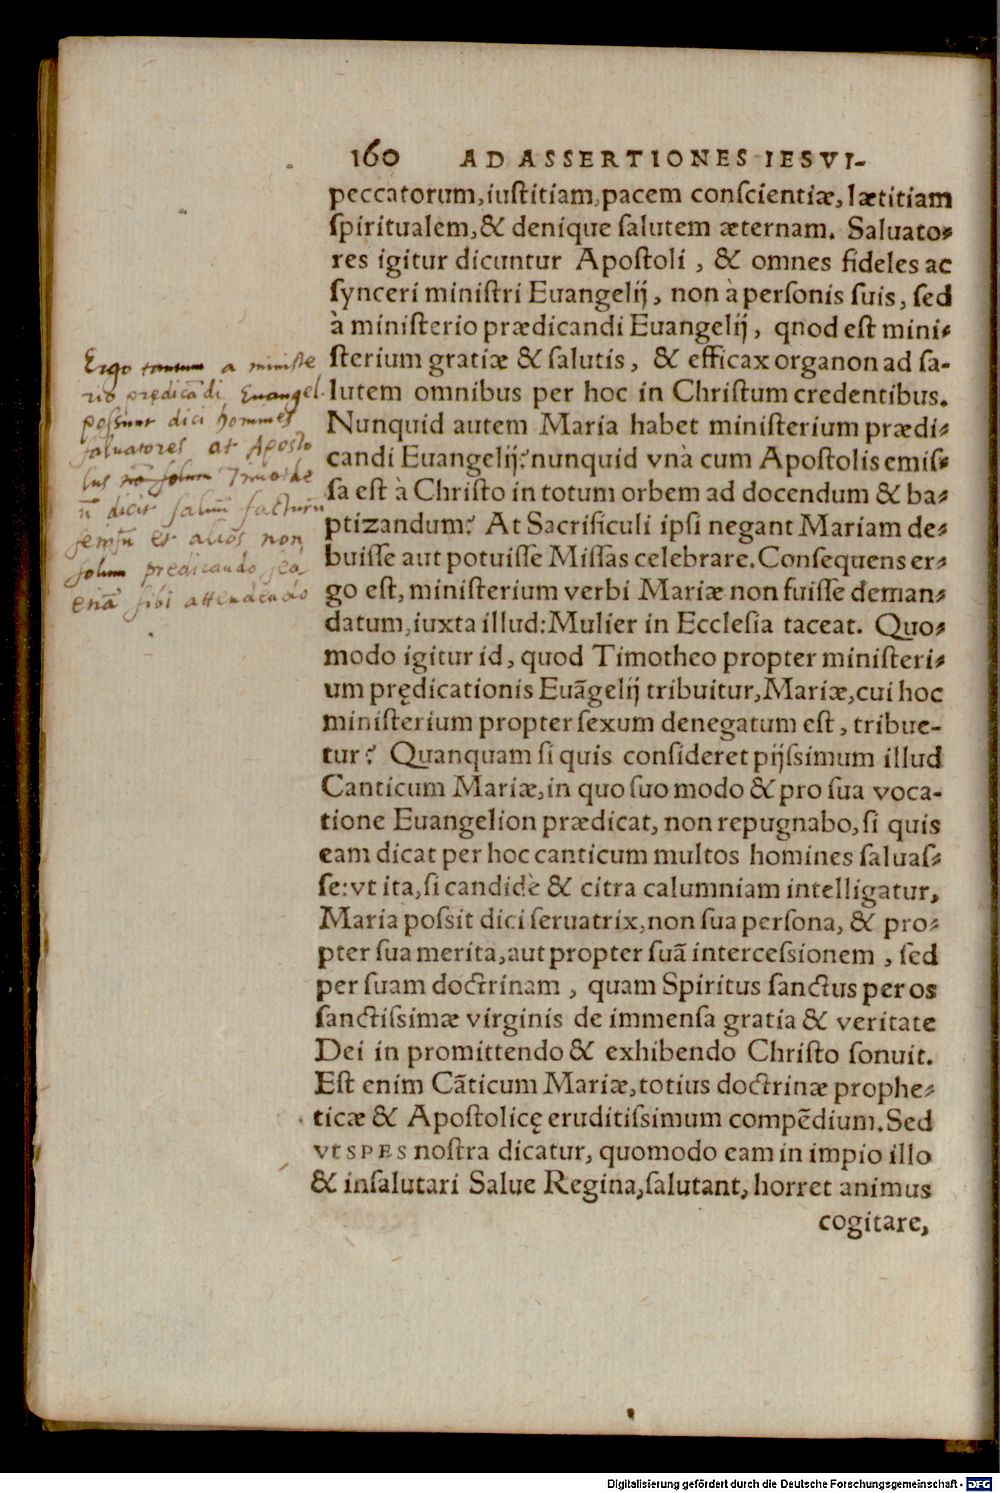 160 AD ASSERTIONES IESVI-
peccatorum, iuſtitiam, pacem conſcientiæ, lætitiam
ſpiritualem, & denique ſalutem æternam. Saluato-
res igitur dicuntur Apoſtoli, & omnes fideles ac
ſynceri miniſtri Euangelij, non à perſonis ſuis, ſed
à miniſterio prædicandi Euangelij, qnod eſt mini-
ſterium gratiæ & ſalutis, & efficax organon ad ſa-
lutem omnibus per hoc in Chriſtum credentibus.
Nunquid autem Maria habet miniſterium prædi-
candi Euangelij? nunquid vnà cum Apoſtolis emiſ-
ſa eſt à Chriſto in totum orbem ad docendum & ba-
ptizandum? At Sacrificuli ipſi negant Mariam de-
buiſſe aut potuiſſe Miſſas celebrare. Conſequens er-
go eſt, miniſterium verbi Mariæ non fuiſſe deman-
datum, iuxta illud: Mulier in Eccleſia taceat. Quo-
modo igitur id, quod Timotheo propter miniſteri-
um prędicationis Euãgelij tribuitur, Mariæ, cui hoc
miniſterium propter ſexum denegatum eſt, tribue-
tur? Quanquam ſi quis conſideret pijſsimum illud
Canticum Mariæ, in quo ſuo modo & pro ſua voca-
tione Euangelion prædicat, non repugnabo, ſi quis
eam dicat per hoc canticum multos homines ſaluaſ-
ſe: vt ita, ſi candidè & citra calumniam intelligatur,
Maria poſsit dici ſeruatrix, non ſua perſona, & pro-
pter ſua merita, aut propter ſuã interceſsionem, ſed
per ſuam doctrinam, quam Spiritus ſanctus per os
ſanctiſsimæ virginis de immenſa gratia & veritate
Dei in promittendo & exhibendo Chriſto ſonuit.
Eſt enim Cãticum Mariæ, totius doctrinæ prophe-
ticæ & Apoſtolicę eruditiſsimum compẽdium. Sed
vt SPES noſtra dicatur, quomodo eam in impio illo
& inſalutari Salue Regina, ſalutant, horret animus
cogitare,
Ergo tantum a miniſte
rio prędicãdi Euangel.
poſſunt dici homines
ſaluatores at Apoſto
lus nõ ſolum Timothe
ũ dicit ſaluũ facturũ
ſeipſũ et alios non
ſolum predicando ſed
etiã ſibi attendendo
Digitalisierung gefördert durch die Deutsche Forschungsgemeinschaft - DFG